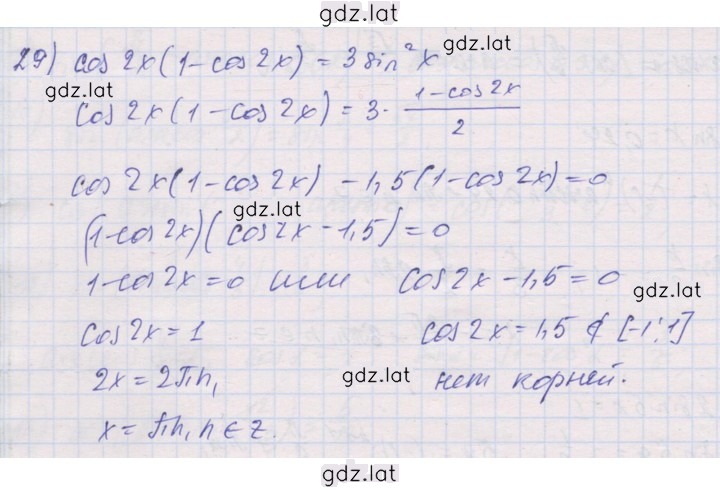 gdz.lat
29) cos 2x (1 - cos 2x) = 3 sin²x gdz.lat
gdz.lat
cos 2x (1 - cos 2x) = 3 · (1 - cos 2x)/2
cos 2x (1 - cos 2x) - 1,5 (1 - cos 2x) = 0
gdz.lat
(1 - cos 2x)(cos 2x - 1,5) = 0
1 - cos 2x = 0 или cos 2x - 1,5 = 0
gdz.lat
cos 2x = 1 cos 2x = 1,5 ∉ [-1; 1]
2x = 2πn, gdz.lat нет корней.
x = πn, n ∈ Z.
gdz.lat